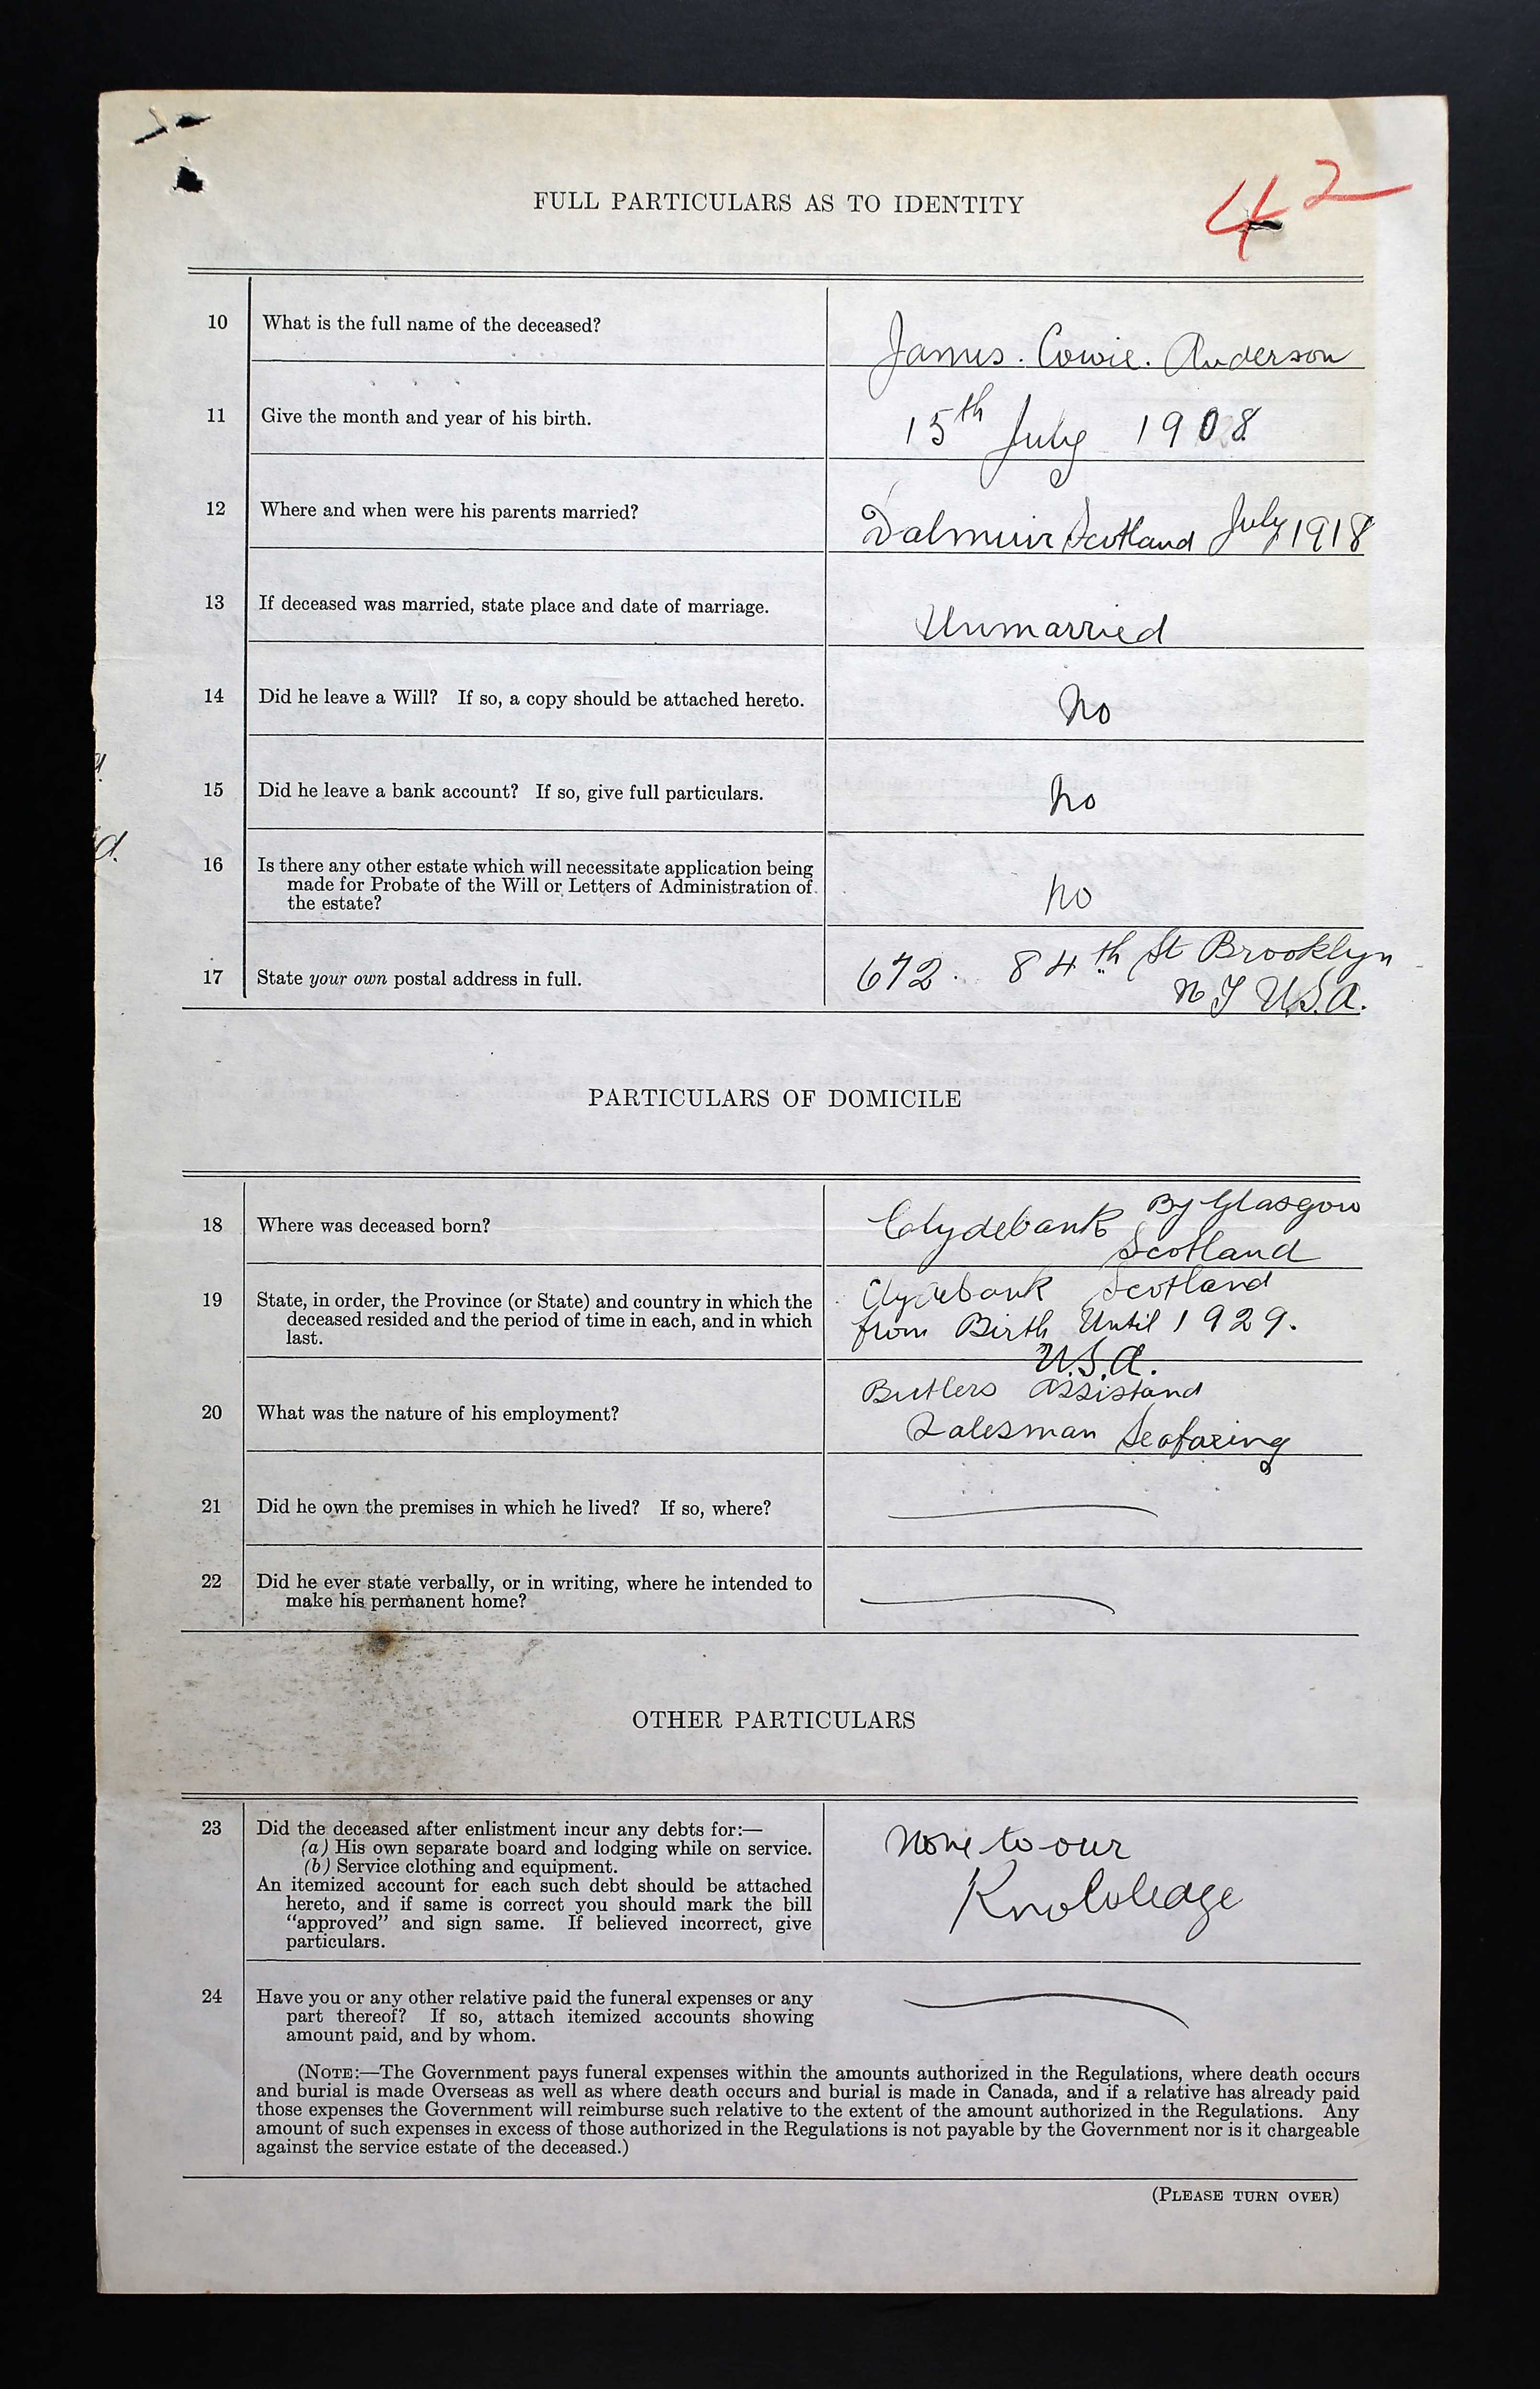 42
FULL PARTICULARS AS TO IDENTITY
10 What is the full name of the deceased? James. Cowie. Anderson
11 Give the month and year of his birth. 15th July 1908
12 Where and when were his parents married? Dalmuir Scotland July 1918
13 If deceased was married, state place and date of marriage. Unmarried
14 Did he leave a Will? If so, a copy should be attached hereto. No
15 Did he leave a bank account? If so, give full particulars. No
d.
16 Is there any other estate which will necessitate application being
made for Probate of the Will or Letters of Administration of
the estate? No
17 State your own postal address in full. 672. 84th St Brooklyn
N Y U.S.A.
PARTICULARS OF DOMICILE
18 Where was deceased born? Clydebank By Glasgow
Scotland
19 State, in order, the Province (or State) and country in which the
deceased resided and the period of time in each, and in which
last. Clydebank Scotland
from Birth Until 1929.
U.S.A.
20 What was the nature of his employment? Butlers Assistand
Salesman Seafaring
21 Did he own the premises in which he lived? If so, where?
22 Did he ever state verbally, or in writing, where he intended to
make his permanent home?
OTHER PARTICULARS
23 Did the deceased after enlistment incur any debts for:—
(a) His own separate board and lodging while on service.
(b) Service clothing and equipment.
An itemized account for each such debt should be attached
hereto, and if same is correct you should mark the bill
"approved" and sign same. If believed incorrect, give
particulars.
None to our
Knowledge
24 Have you or any other relative paid the funeral expenses or any
part thereof? If so, attach itemized accounts showing
amount paid, and by whom.
(NOTE:—The Government pays funeral expenses within the amounts authorized in the Regulations, where death occurs
and burial is made Overseas as well as where death occurs and burial is made in Canada, and if a relative has already paid
those expenses the Government will reimburse such relative to the extent of the amount authorized in the Regulations. Any
amount of such expenses in excess of those authorized in the Regulations is not payable by the Government nor is it chargeable
against the service estate of the deceased.)
(PLEASE TURN OVER)